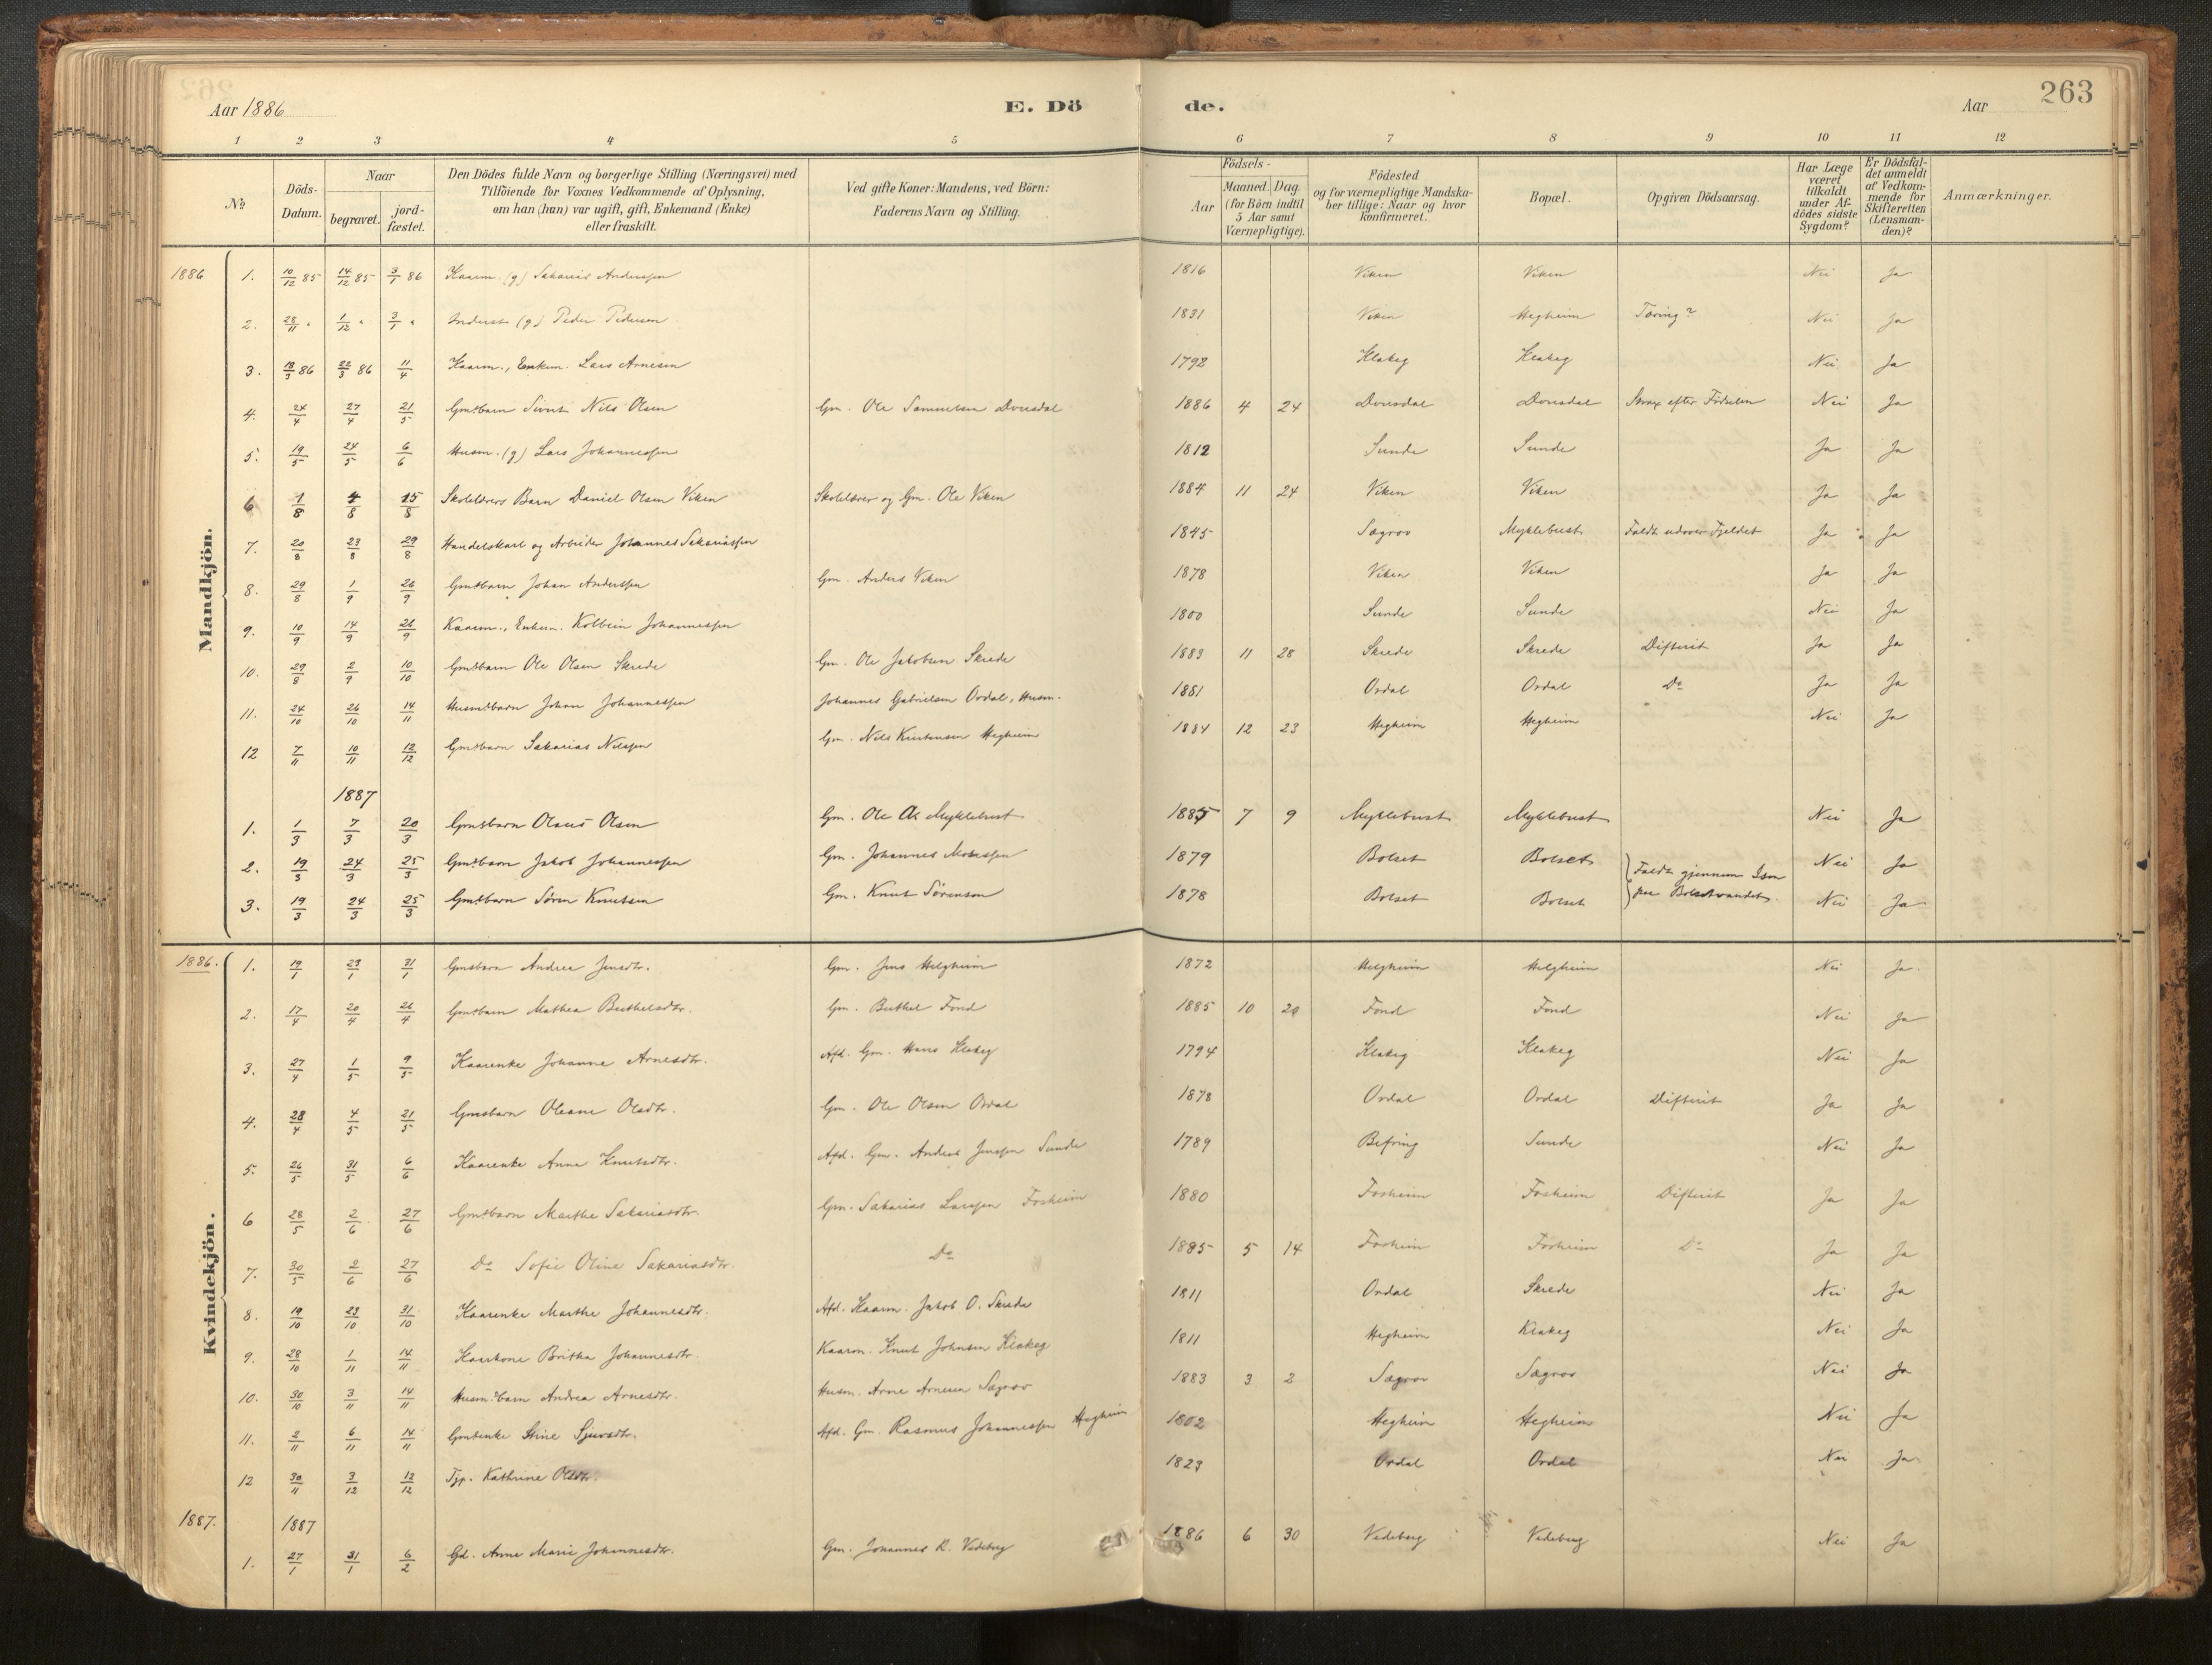 263
Aar 1886 E. Dö de. Aar
1 2 3 4 5 6 7 8 9 10 11 12
No
Döds-Datum.
Naar
begravet.
jord-fæstet.
Den Dödes fulde Navn og borgerlige Stilling (Næringsvei) med
Tilföiende for Voxnes Vedkommende af Oplysning,
om han (hun) var ugift, gift, Enkemand (Enke)
eller fraskilt.
Ved gifte Koner: Mandens, ved Börn:
Faderens Navn og Stilling.
Födsels-
Aar
Maaned. Dag.
(for Börn indtil
5 Aar samt
Værnepligtige).
Födested
og for værnepligtige Mandska-
ber tillige: Naar og hvor
konfirmeret.
Bopæl.
Opgiven Dödsaarsag.
Har Læge
været
tilkaldt
under Af-
dödes sidste
Sygdom?
Er Dödsfal-
det anmeldt
af Vedkom-
mende for
Skifteretten
(Lensman-
den)?
Anmærkninger.
Mandkjön.
1886 1. 10/12 85 14/12 85 3/1 86 Kaarm. (g) Sakarias Anderssen 1816 Viken Viken Nei Ja
2. 28/11 " 1/12 " 3/1 " Inderst (g) Peder Pedersen 1831 Viken Hegheim Tæring? Nei Ja
3. 18/3 86 22/3 86 11/4 Kaarm., Enkem. Lars Arnesen 1792 Klakeg Klakeg Nei Ja
4. 24/4 27/4 21/5 Gmdbarn Sivert Nils Olsen Gm. Ole Samuelsen Dvergsdal 1886 4 24 Dvergsdal Dvergsdal Strax efter Fødselen Nei Ja
5. 19/5 24/5 6/6 Husm. (g) Lars Johannessen 1812 Sunde Sunde Ja Ja
6 1/8 4/8 15/8 Skolelærers Barn Daniel Olsen Viken Skolelærer og Gm. Ole Viken 1884 11 24 Viken Viken Ja Ja
7. 20/8 23/8 29/8 Handelskarl og Arbeider Johannes Sakariassen 1845 Sægrov Myklebust Faldt udover Fjeldet Ja Ja
8. 29/8 1/9 26/9 Gmdbarn Johan Anderssen Gm. Anders Viken 1878 Viken Viken Ja Ja
9. 10/9 14/9 26/9 Kaarm., Enkem. Kolbein Johannessen 1800 Sunde Sunde Nei Ja
10. 29/8 2/9 10/10 Gmdbarn Ole Olsen Skrede Gm. Ole Jakobsen Skrede 1883 11 28 Skrede Skrede Difterit Ja Ja
11. 24/10 26/10 14/11 Husmdbarn Johan Johannessen Johannes Gabrielsen Ordal, Husm. 1881 Ordal Ordal Do Ja Ja
12 7/11 10/11 12/12 Gmdbarn Sakarias Nilssen Gm. Nils Kristensen Hegheim 1884 12 23 Hegheim Hegheim Nei Ja
1887
1. 1/3 7/3 20/3 Gmdbarn Olaus Olsen Gm. Ole A. Myklebust 1885 7 9 Myklebust Myklebust Nei Ja
2. 19/3 24/3 25/3 Gmdbarn Jakob Johannessen Gm. Johannes Mosessen 1879 Bolset Bolset Faldt gjennem Isen Nei Ja
3. 19/3 24/3 25/3 Gmdbarn Søren Knutsen Gm. Knut Sørensen 1878 Bolset Bolset paa Bolsetvandet. Nei Ja
Kvindekjön.
1886. 1. 19/1 29/1 31/1 Gmdbarn Andrea Jensdtr. Gm. Jens Helgheim 1872 Helgheim Helgheim Nei Ja
2. 17/4 20/4 26/4 Gmdbarn Mathea Berthelsdtr. Gm. Berthel Fond 1885 10 20 Fond Fond Nei Ja
3. 27/4 1/5 9/5 Kaarenke Johanne Arnesdtr. Afd. Gm. Hans Klakeg 1794 Klakeg Klakeg Nei Ja
4. 28/4 4/5 21/5 Gmdbarn Oleane Olsdtr. Gm. Ole Olsen Ordal 1878 Ordal Ordal Difterit Ja Ja
5. 26/5 31/5 6/6 Kaarenke Anna Knutsdtr. Afd. Gm. Anders Jenssen Sunde 1789 Befring Sunde Nei Ja
6 28/5 2/6 27/6 Gmdbarn Marthe Sakariasdtr. Gm. Sakarias Larssen Fosheim 1880 Fosheim Fosheim Difterit Ja Ja
7. 30/5 2/6 27/6 Do Sofie Oline Sakariasdtr. Do 1885 5 14 Fosheim Fosheim Do Ja Ja
8. 19/10 23/10 31/10 Kaarenke Marthe Johannesdtr. Afd. Kaarm. Jakob O. Skrede 1811 Ordal Skrede Nei Ja
9. 28/10 1/11 14/11 Kaarkone Britha Johannesdtr. Kaarm. Knut Johnsen Klakeg 1811 Hegheim Klakeg Nei Ja
10. 30/10 3/11 14/11 Husm.barn Andrea Arnesdtr. Husm. Arne Arnesen Sægrov 1883 3 2 Sægrov Sægrov Nei Ja
11. 2/11 6/11 14/11 Gmdenke Stine Sjursdtr. Afd. Gm. Rasmus Johannessen Hegheim 1802 Hegheim Hegheim Nei Ja
12 30/11 3/12 12/12 Tjp. Kathrine Olsdtr. 1823 Ordal Ordal Nei Ja
1887. 1887
1. 27/1 31/1 6/2 Gd. Anne Marie Johannesdtr. Gm. Johannes R. Vedeberg 1886 6 30 Vedeberg Vedeberg Nei Ja